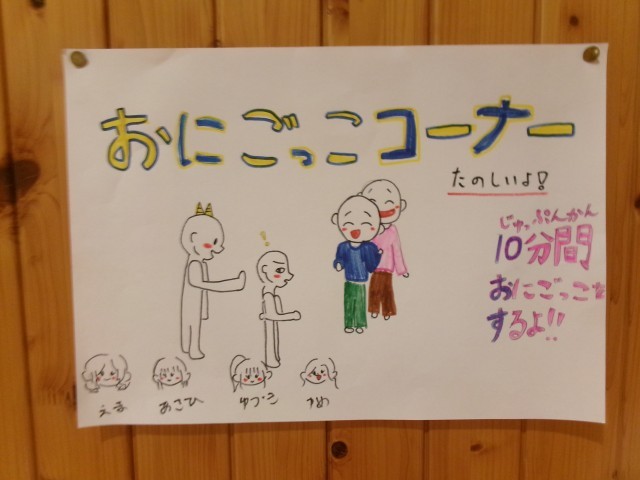 おにごっこコーナー
たのしいよ!
じゅっぷんかん
10分間
おにごっこを
するよ!!
!
えま
あさひ
ゆづき
ゆめ